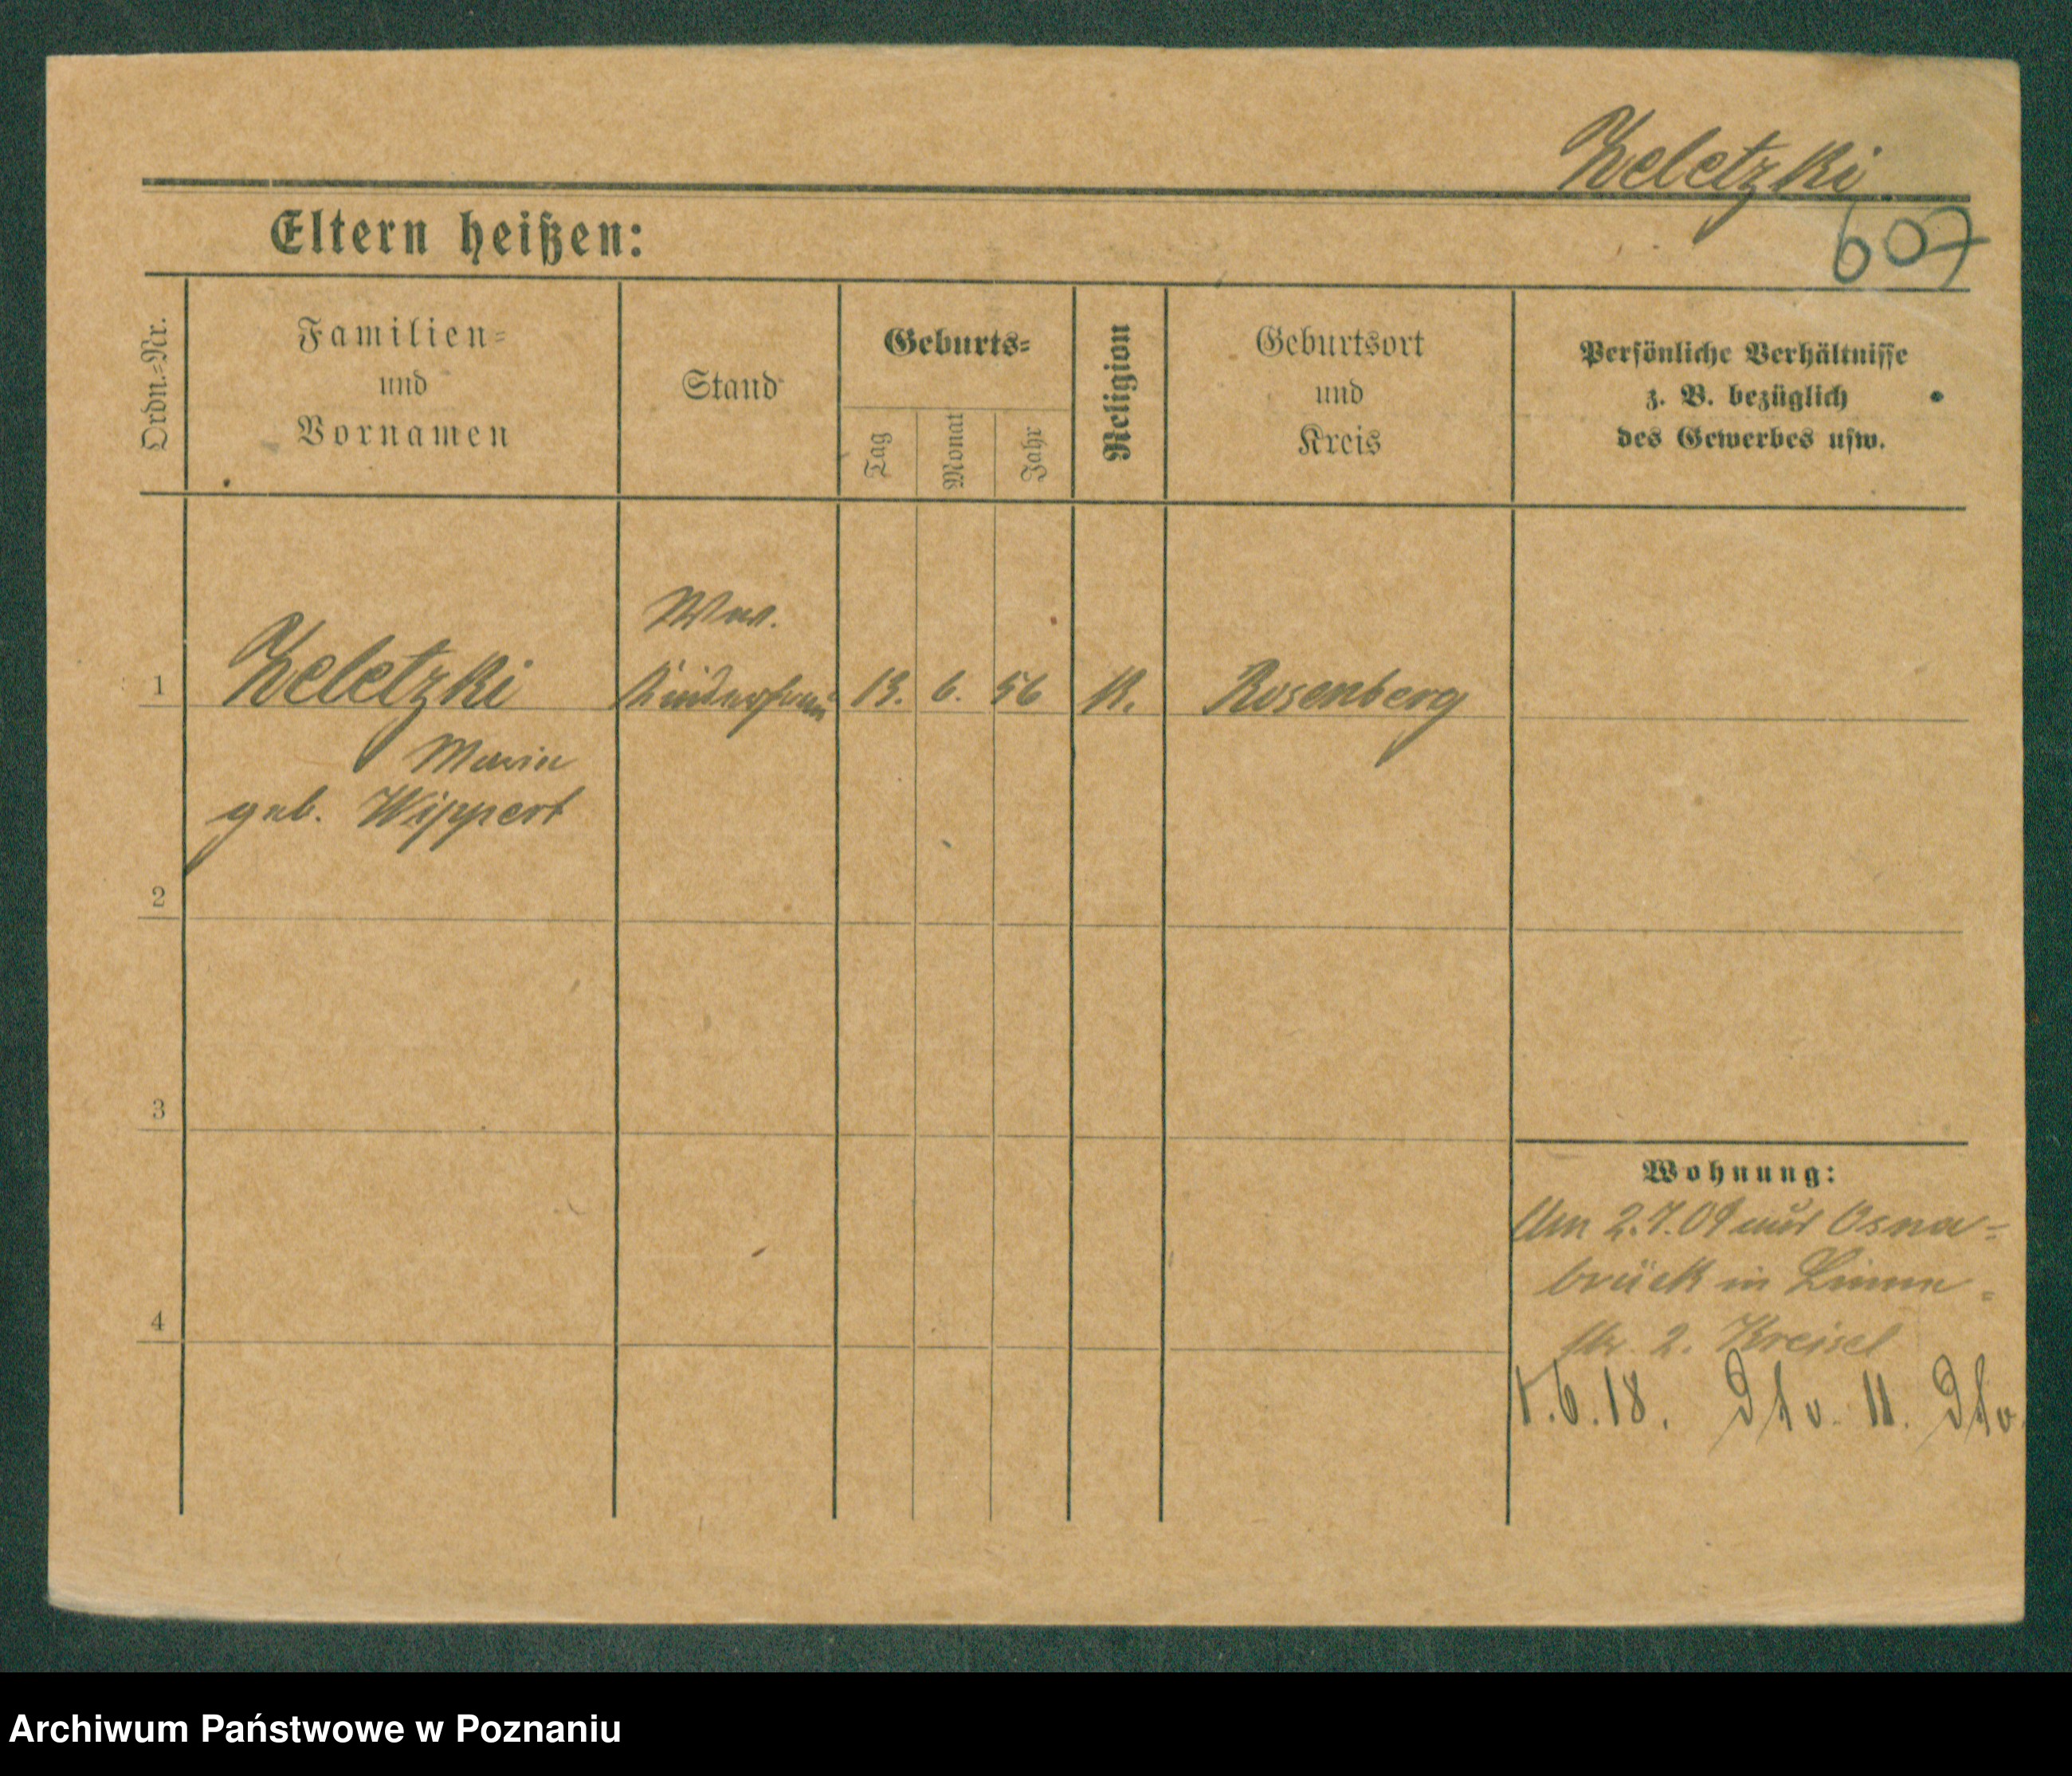 Zeletzki
607
Eltern heißen:
Ordn.=Nr.
Familien=
und
Vornamen
Stand
Geburts=
Tag
Monat
Jahr
Religion
Geburtsort
und
Kreis
Persönliche Verhältnisse
z. B. bezüglich
des Gewerbes usw.
Ww.
1 Zeletzki Kinderfrau 13. 6. 56 K. Rosenberg
Maria
geb. Wippert
2
3
4
Wohnung:
Am 2.7.09 aus Osna=
brück in
str. 2. Kreisel
1.6.18. 11.
Archiwum Państwowe w Poznaniu